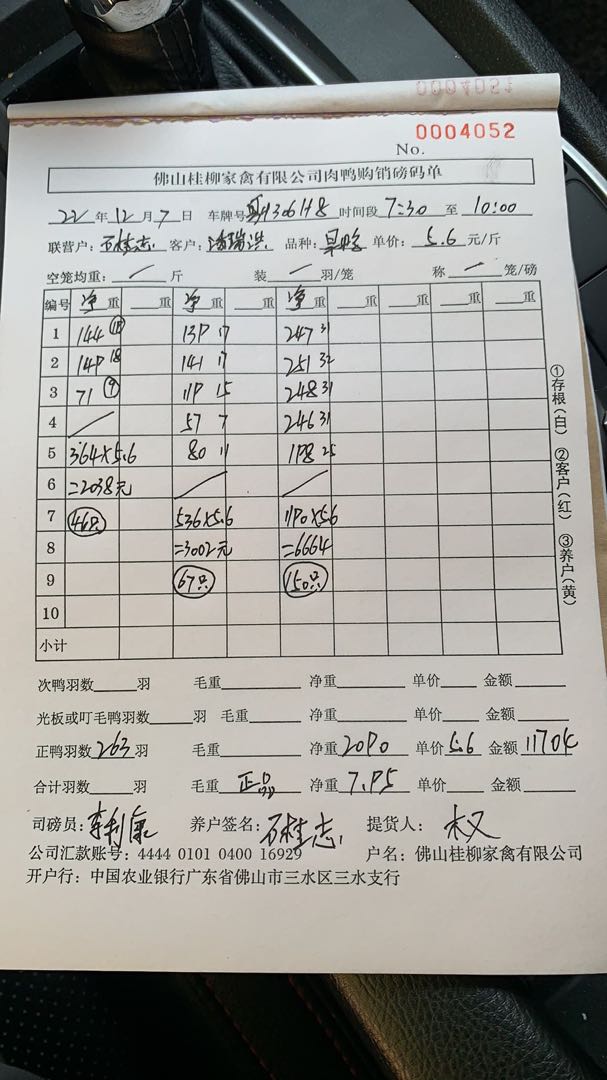 0004051
0004052
No.
佛山桂柳家禽有限公司肉鸭购销磅码单
22年12月7日 车牌号 时间段 7:30 至 10:00
联营户: 石桂志 客户: 潘瑞洪 品种: 单价: 5.6 元/斤
空笼均重: / 斤 装 / 羽/笼 称 / 笼/磅
编号 净重 重 净重 重 净重 重 重 重 重
1 144 18 139 17 247 31
2 149 18 141 17 251 32
3 71 9 119 15 248 31
4 / 57 7 246 31
5 364×5.6 80 11 198 25
6 =2038元 / /
7 46只 536×5.6 1190×5.6
8 =3002元 =6664
9 67只 150只
10
小计
①存根(白) ②客户(红) ③养户(黄)
次鸭羽数 羽 毛重 净重 单价 金额
光板或叮毛鸭羽数 羽 毛重 净重 单价 金额
正鸭羽数 263 羽 毛重 净重 2090 单价 5.6 金额 11704
合计羽数 羽 毛重 正品 净重 7.95 单价 金额
司磅员: 李利康 养户签名: 石桂志 提货人:
公司汇款账号: 4444 0101 0400 16929 户名: 佛山桂柳家禽有限公司
开户行: 中国农业银行广东省佛山市三水区三水支行